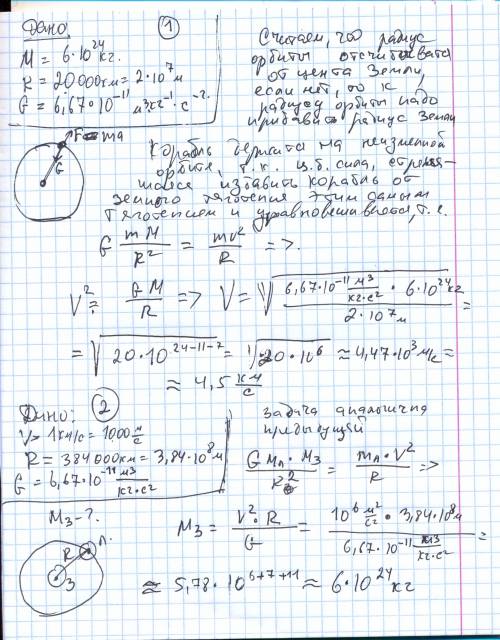 Дано: ①
M = 6·10²⁴ кг.
R = 20000км = 2·10⁷ м
G = 6,67·10⁻¹¹ м³кг⁻¹·с⁻².
Считаем, что радиус
орбиты отсчитывать
от цента Земли,
если нет, то к
радиусу орбиты надо
прибавить радиус Земли
F = ma
G
Корабль держится на неизменной
орбите, т.к. ц.б. сила, стремя-
щаяся избавить корабль от
земного тяготения этим самым
тяготением и уравновешивается, т.е.
G mM/R² = mv²/R =>.
V² = GM/R => V = √(6,67·10⁻¹¹ м³/кг·с² · 6·10²⁴ кг / 2·10⁷ м) =
= √(20·10²⁴⁻¹¹⁻⁷) = √(20·10⁶) ≈ 4,47·10³ м/с =
≈ 4,5 км/с
② Дано:
V = 1км/с = 1000 м/с
R = 384000км = 3,84·10⁸ м
G = 6,67·10⁻¹¹ м³/кг·с²
Mз - ?
Задача аналогична
предыдущей
G Mл · Mз / R² = mл · V² / R =>
R Л.
З
Mз = V² · R / G = 10⁶ м²/с² · 3,84·10⁸ м / 6,67·10⁻¹¹ м³/кг·с² =
≈ 5,78 · 10⁶⁺⁷⁺¹¹ ≈ 6·10²⁴ кг